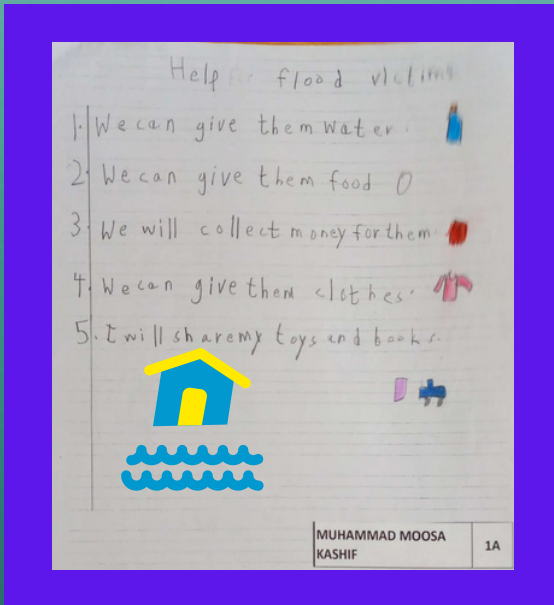 Help for flood victims
1. We can give them water.
2 We can give them food
3. We will collect money for them.
4. We can give them clothes.
5. I will share my toys and books.
MUHAMMAD MOOSA
KASHIF
1A